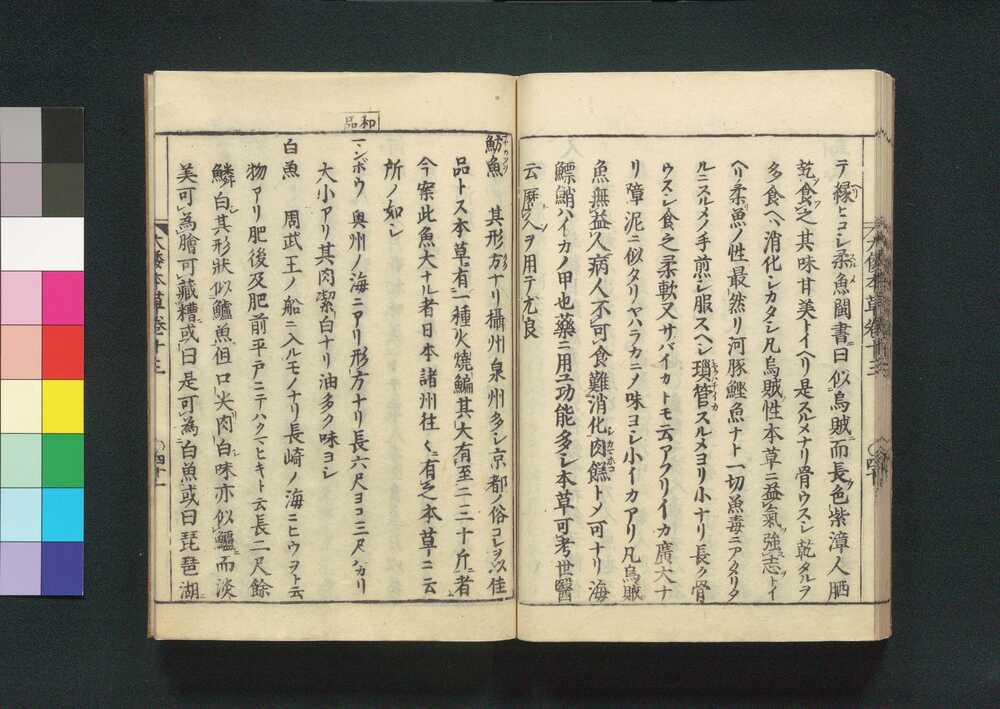 テ縁ヒコシ柔魚閩書曰似烏賊而長色紫漳人晒
乾食之其味甘美トイヘリ是スルメナリ骨ウスシ乾タルヲ
多食ヘハ消化シカタシ凡烏賊性本草ニ益氣強志トイ
ヘリ柔魚ノ性最然リ河豚鰹魚ナト一切魚毒ニアタリタ
ルニスルメノ手煎シ服スヘシ瑣管スルメヨリ小ナリ長ク骨
ウスシ食之柔軟又サバイカトモ云アフリイカ廣大ナ
リ障泥ニ似タリヤハラカニノ味ヨシ小イカアリ凡烏賊
魚無益人病人不可食難消化肉餻トメ可ナリ海
鰾鮹ハイカノ甲也藥ニ用ユ功能多シ本草可考世醫
云歴久ヲ用テ尤良
魴魚 其形方ナリ攝州泉州多シ京都ノ俗コレヲ以佳
品トス本草有一種火燒鯿其大有至二三十斤者
今案此魚大ナル者日本諸州往々有之本草ニ云
所ノ如シ
和品
マンボウ 奥州ノ海ニアリ形方ナリ長六尺ヨコ三尺ハカリ
大小アリ其肉潔白ナリ油多ク味ヨシ
白魚 周武王ノ船ニ入ルモノナリ長崎ノ海ニヒウヲト云
物アリ肥後及肥前平戸ニテハクマヒキト云長二尺餘
鱗白其形狀似鱸魚但口尖肉白味亦似鱸而淡
美可為膾可藏糟或曰是可為白魚或曰琵琶湖
大倭本草卷十三
四十一
大倭本草卷十三
四十